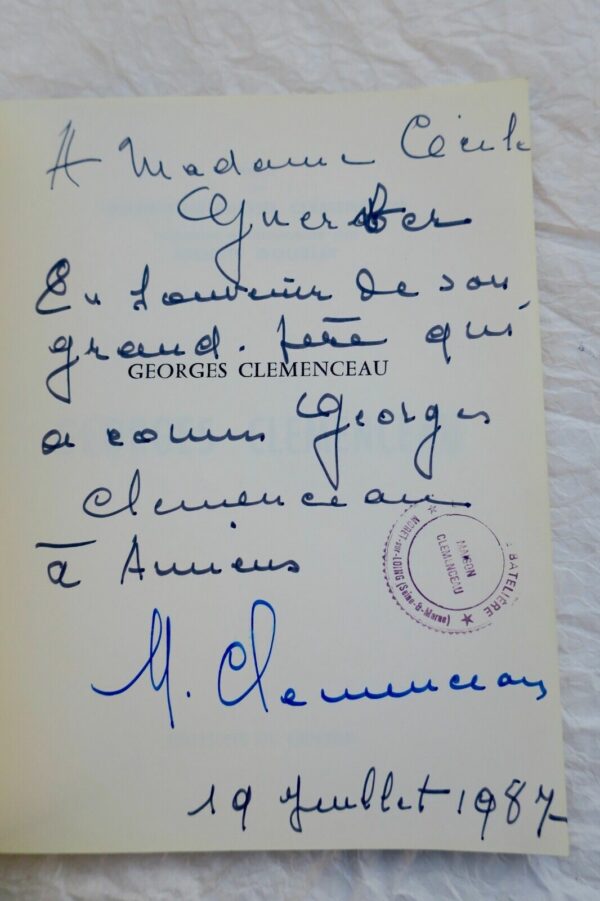 A Madame Cécile
Guerber
En souvenir de son
grand-père qui
GEORGES CLEMENCEAU
a connu Georges
Clemenceau
à Amiens
BATELIÈRE
MAISON
CLEMENCEAU
★ MORET-sur-LOING (Seine-&-Marne) ★
M. Clemenceau
19 Juillet 1987